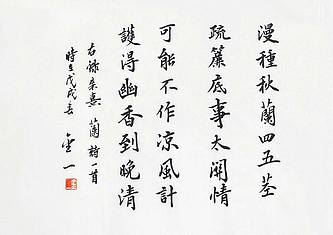 漫種秋蘭四五莖
疏簾底事太關情
可能不作涼風計
護得幽香到晚清
右錄朱熹蘭詩一首
時在戊戌春金一